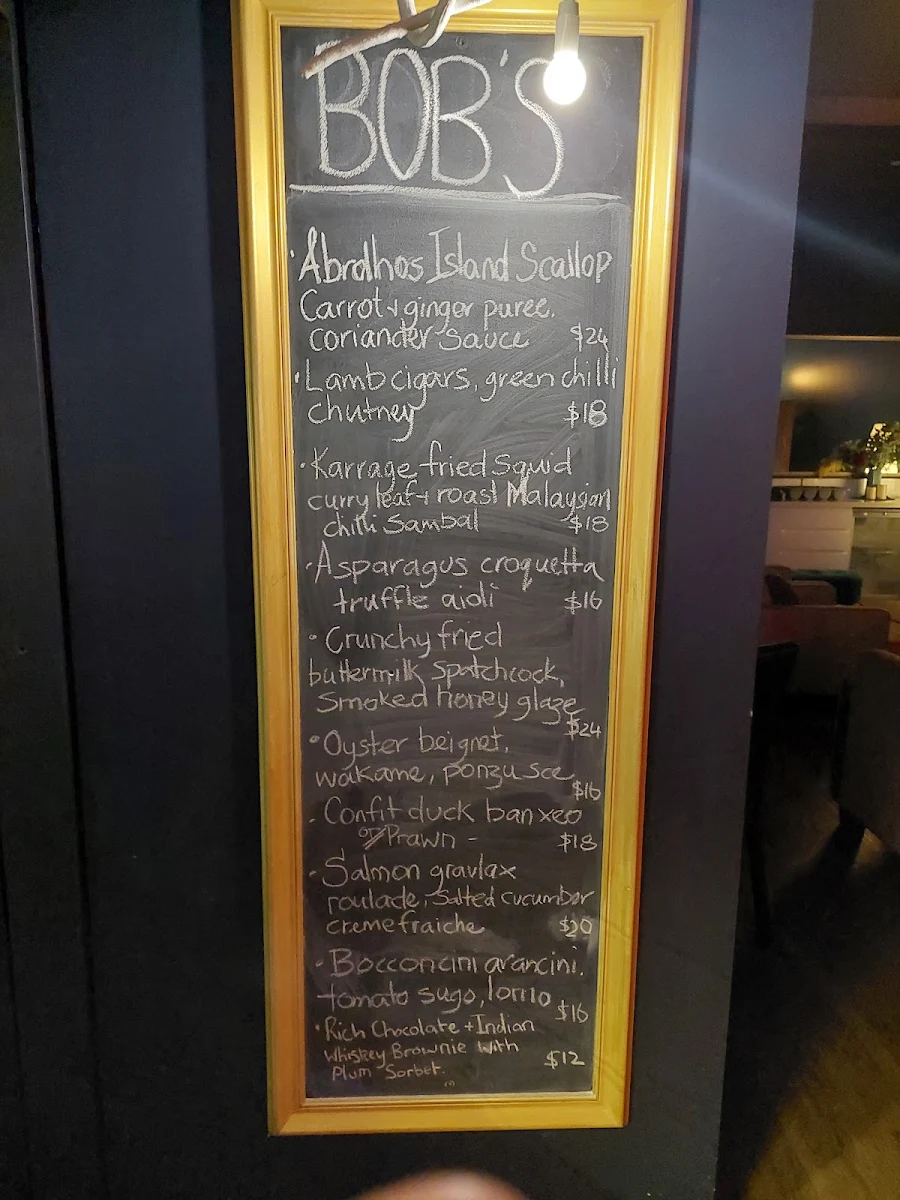 BOB'S
· Abrolhos Island Scallop
Carrot + ginger puree.
coriander sauce $24
· Lamb cigars, green chilli
chutney $18
· Karrage fried squid
curry leaf + roast Malaysian
chilli Sambal $18
· Asparagus croquetta
truffle aioli $16
· Crunchy fried
buttermilk spatchcock,
smoked honey glaze
$24
· Oyster beignet,
wakame, ponzu sce
$16
· Confit duck banxeo
or Prawn - $18
· Salmon gravlax
roulade, salted cucumber
creme fraiche $20
· Bocconcini arancini.
tomato sugo, lomo
$16
· Rich Chocolate + Indian
Whiskey Brownie with
Plum Sorbet. $12